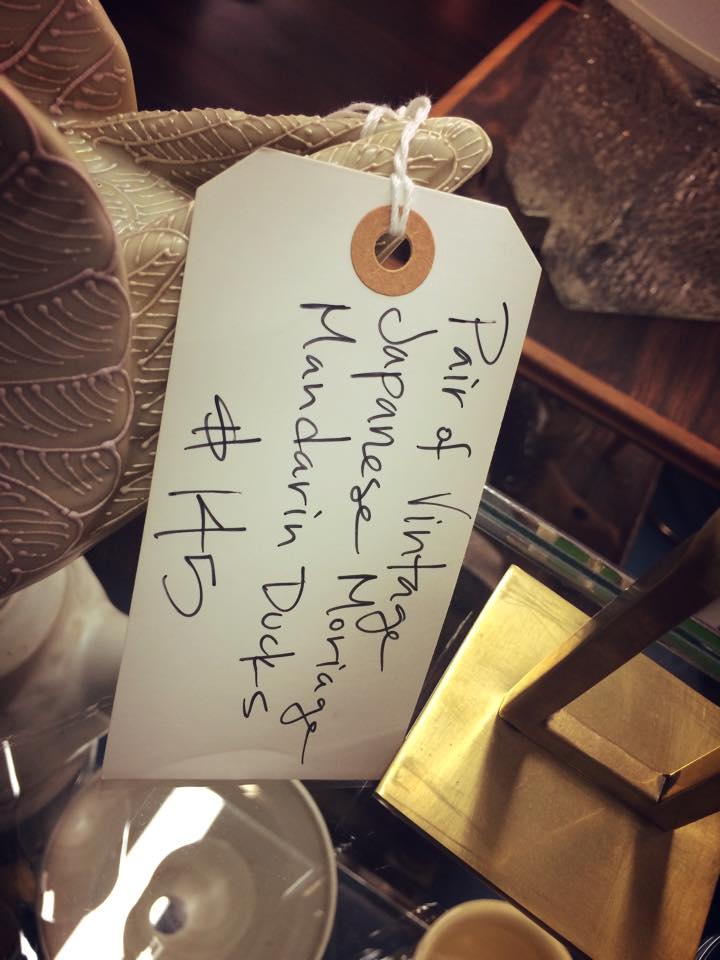 Pair of Vintage
Japanese Moriage
Mandarin Ducks
$145